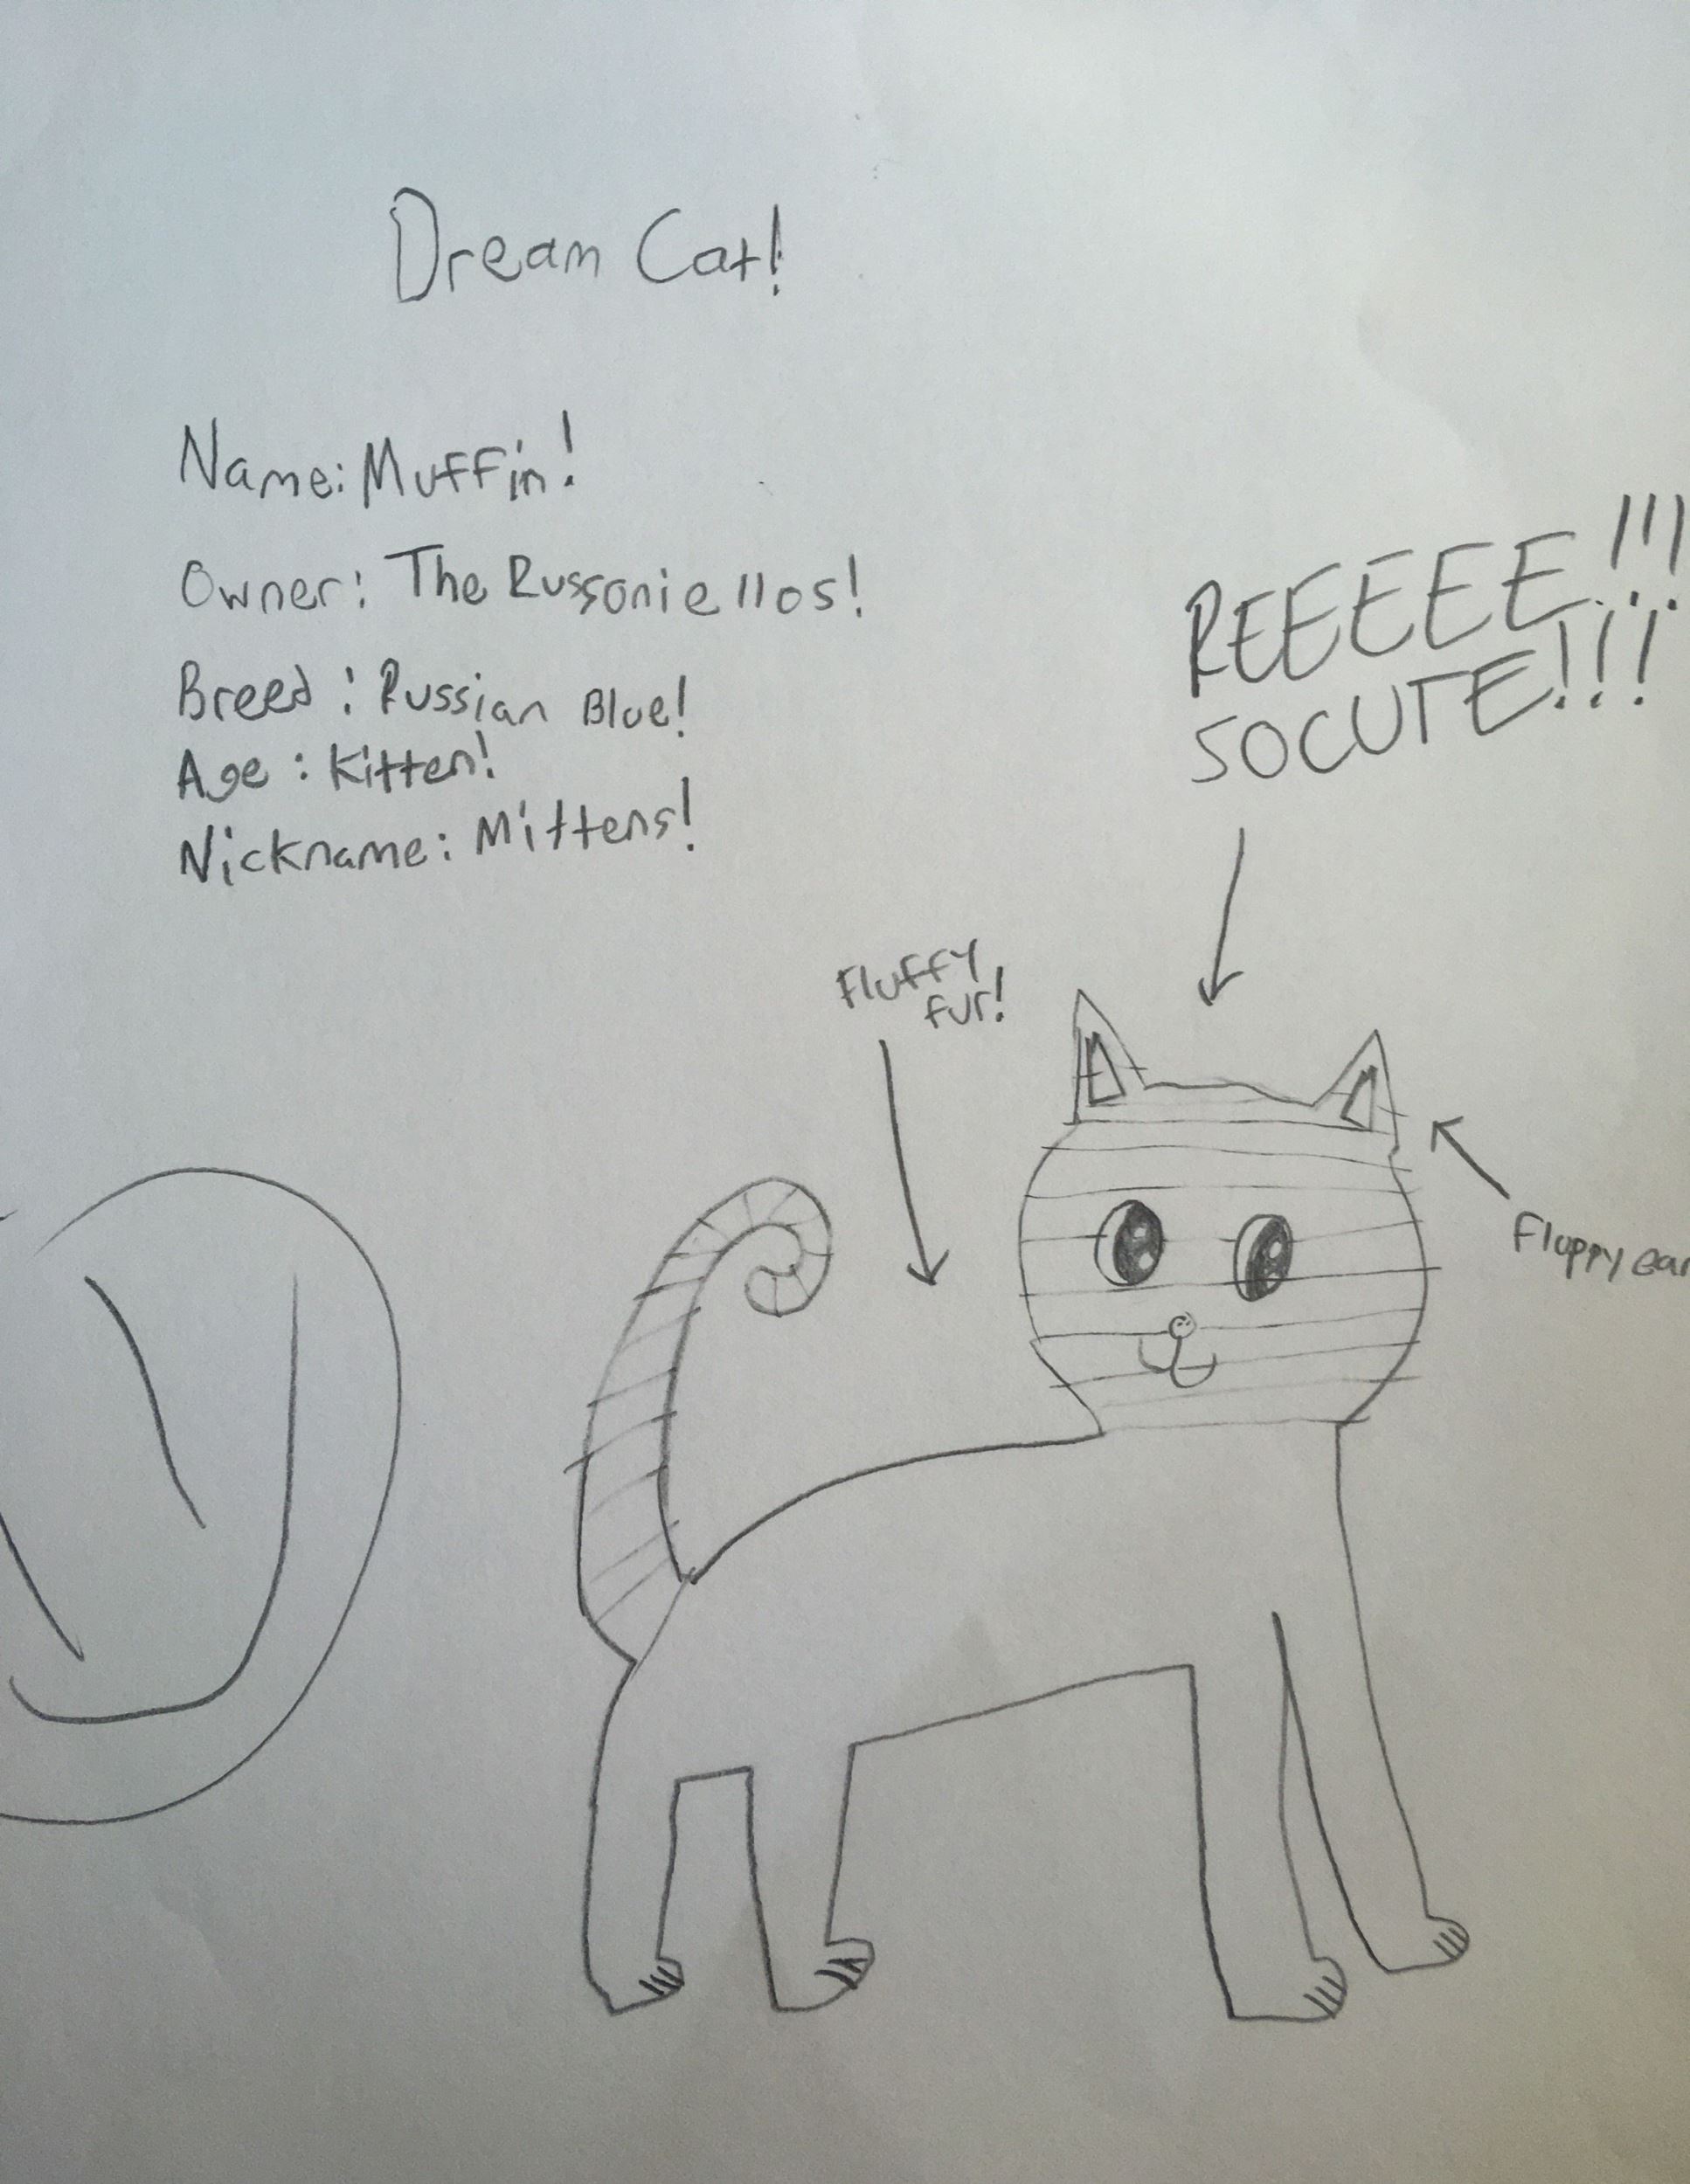 Dream Cat!
Name: Muffin!
Owner: The Russoniellos!
Breed: Russian Blue!
Age: Kitten!
Nickname: Mittens!
REEEEE!!!
SOCUTE!!!
Fluffy
fur!
Floppy ear